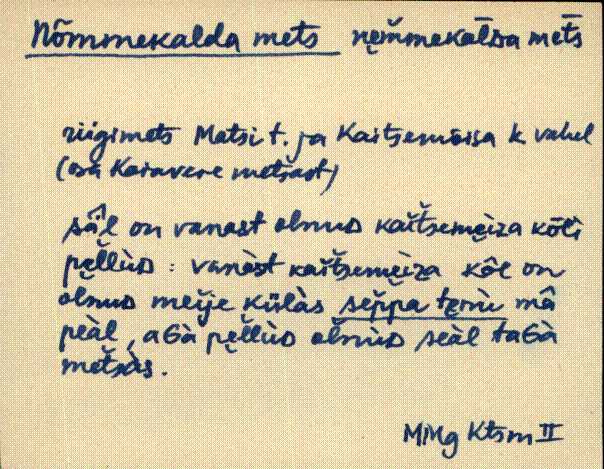 Nõmmekalda mets nę̆m̆mekāl̀Da met̄s
riigimets Matsi t. ja Kaitsemõisa k. vahel
(osa Karavere metsast)
sä̂l on vanast olnuD kait̆semęìza kōlì
pęl̆lùD : vanàst kait̆semęìza kōl on
olnuD meije külàs sep̆pa tęnù mâ
peàl, aGà pęl̆lùD ol̆nùD seàl taGà
met̆sàs.
MMg Ktsm II